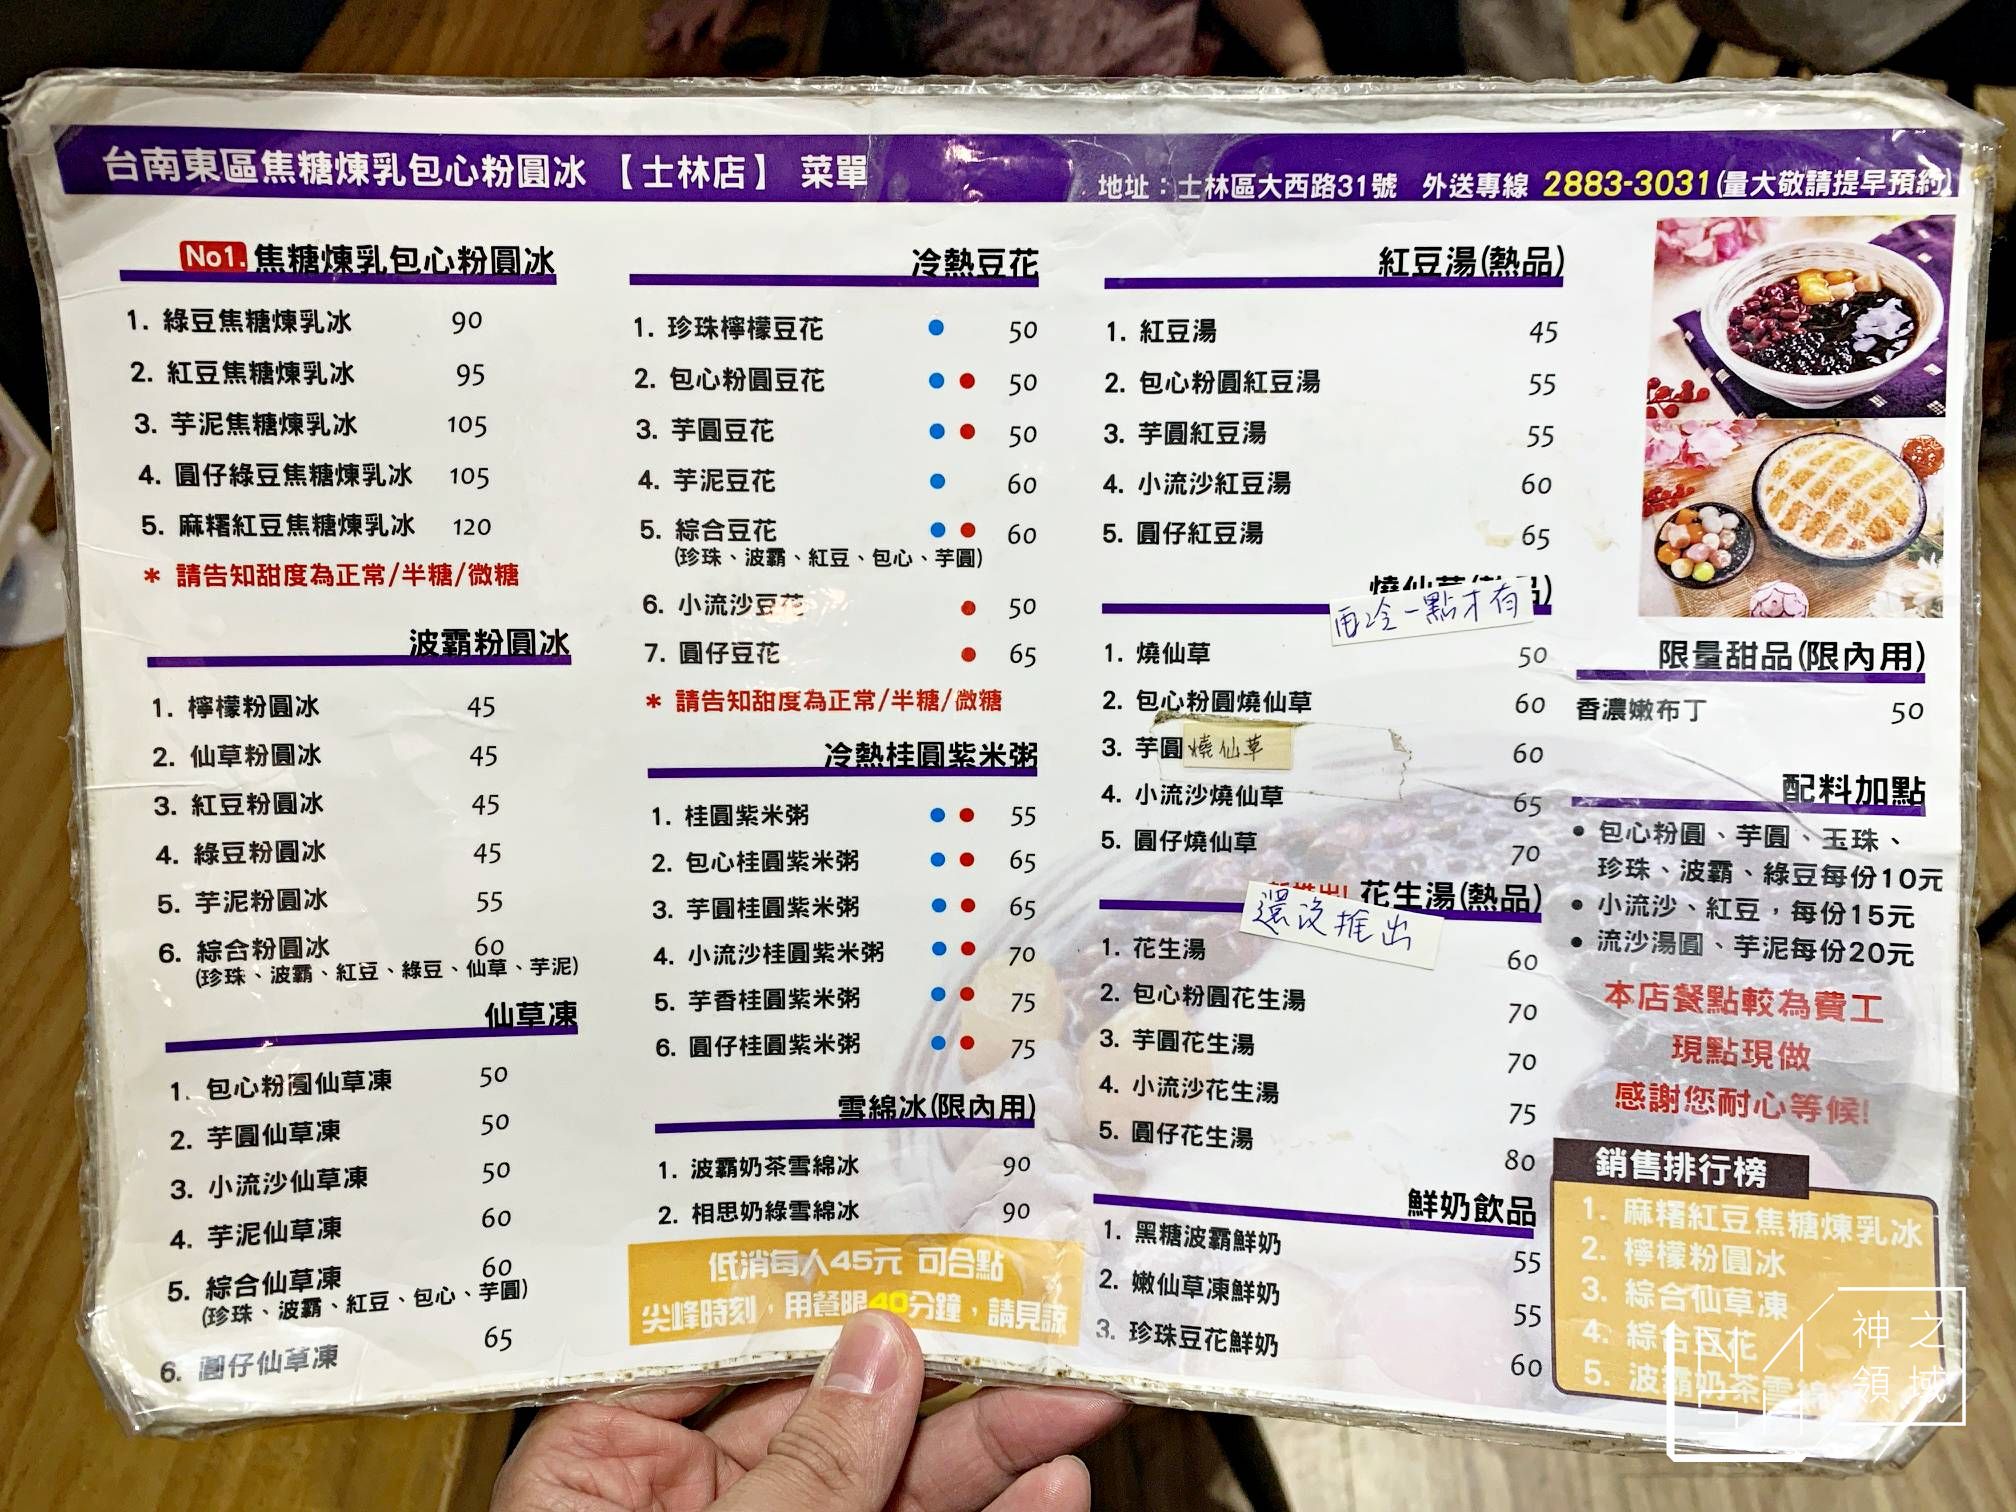 台南東區焦糖煉乳包心粉圓冰 【士林店】 菜單
地址：士林區大西路31號 外送專線 2883-3031(量大敬請提早預約)
No1. 焦糖煉乳包心粉圓冰
1. 綠豆焦糖煉乳冰 90
2. 紅豆焦糖煉乳冰 95
3. 芋泥焦糖煉乳冰 105
4. 圓仔綠豆焦糖煉乳冰 105
5. 麻糬紅豆焦糖煉乳冰 120
* 請告知甜度為正常/半糖/微糖
波霸粉圓冰
1. 檸檬粉圓冰 45
2. 仙草粉圓冰 45
3. 紅豆粉圓冰 45
4. 綠豆粉圓冰 45
5. 芋泥粉圓冰 55
6. 綜合粉圓冰 60
(珍珠、波霸、紅豆、綠豆、仙草、芋泥)
仙草凍
1. 包心粉圓仙草凍 50
2. 芋圓仙草凍 50
3. 小流沙仙草凍 50
4. 芋泥仙草凍 60
5. 綜合仙草凍 60
(珍珠、波霸、紅豆、包心、芋圓)
6. 圓仔仙草凍 65
冷熱豆花
1. 珍珠檸檬豆花 50
2. 包心粉圓豆花 50
3. 芋圓豆花 50
4. 芋泥豆花 60
5. 綜合豆花 60
(珍珠、波霸、紅豆、包心、芋圓)
6. 小流沙豆花 50
7. 圓仔豆花 65
* 請告知甜度為正常/半糖/微糖
冷熱桂圓紫米粥
1. 桂圓紫米粥 55
2. 包心桂圓紫米粥 65
3. 芋圓桂圓紫米粥 65
4. 小流沙桂圓紫米粥 70
5. 芋香桂圓紫米粥 75
6. 圓仔桂圓紫米粥 75
雪綿冰(限內用)
1. 波霸奶茶雪綿冰 90
2. 相思奶綠雪綿冰 90
低消每人45元 可合點
尖峰時刻，用餐限40分鐘，請見諒
紅豆湯(熱品)
1. 紅豆湯 45
2. 包心粉圓紅豆湯 55
3. 芋圓紅豆湯 55
4. 小流沙紅豆湯 60
5. 圓仔紅豆湯 65
燒仙草
再冷一點才有
1. 燒仙草 50
2. 包心粉圓燒仙草 60
3. 芋圓燒仙草 60
4. 小流沙燒仙草 65
5. 圓仔燒仙草 70
花生湯(熱品)
還沒推出
1. 花生湯 60
2. 包心粉圓花生湯 70
3. 芋圓花生湯 70
4. 小流沙花生湯 75
5. 圓仔花生湯 80
鮮奶飲品
1. 黑糖波霸鮮奶 55
2. 嫩仙草凍鮮奶 55
3. 珍珠豆花鮮奶 60
限量甜品(限內用)
香濃嫩布丁 50
配料加點
• 包心粉圓、芋圓、玉珠、
珍珠、波霸、綠豆每份10元
• 小流沙、紅豆，每份15元
• 流沙湯圓、芋泥每份20元
本店餐點較為費工
現點現做
感謝您耐心等候!
銷售排行榜
1. 麻糬紅豆焦糖煉乳冰
2. 檸檬粉圓冰
3. 綜合仙草凍
4. 綜合豆花
5. 波霸奶茶雪綿
神之
領域